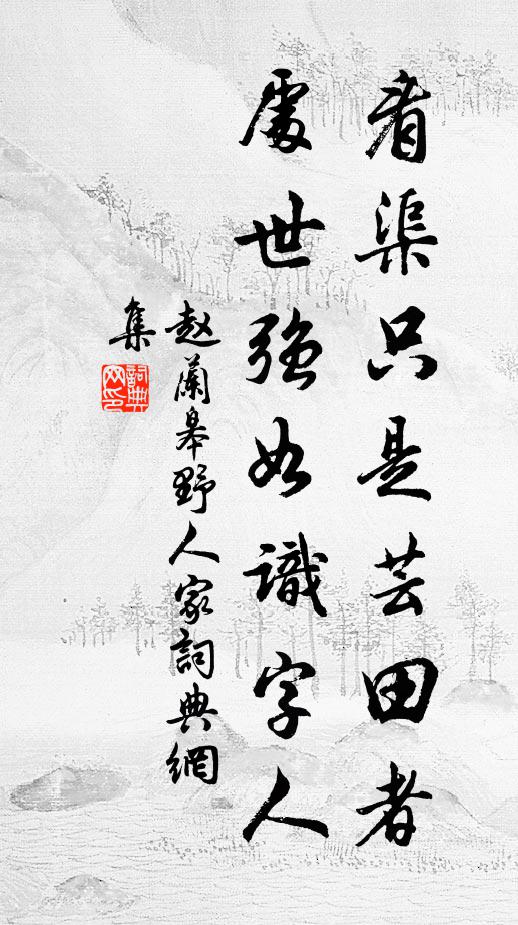 看渠只是芸田者
處世強如識字人
趙蘭皋野人家詞典網
集
詞典
网印